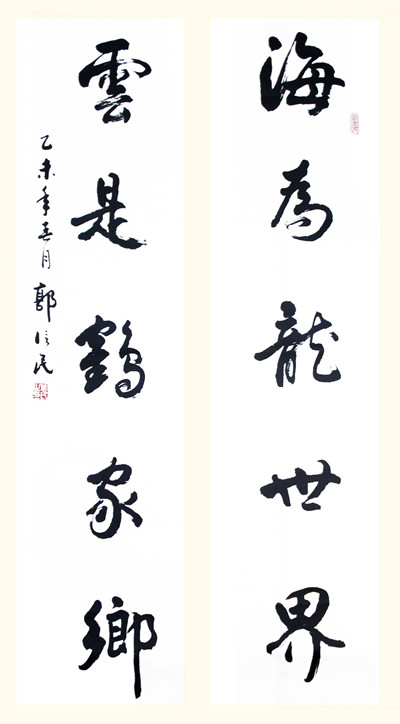 海為龍世界
雲是鶴家鄉
乙未年春月 郭信民